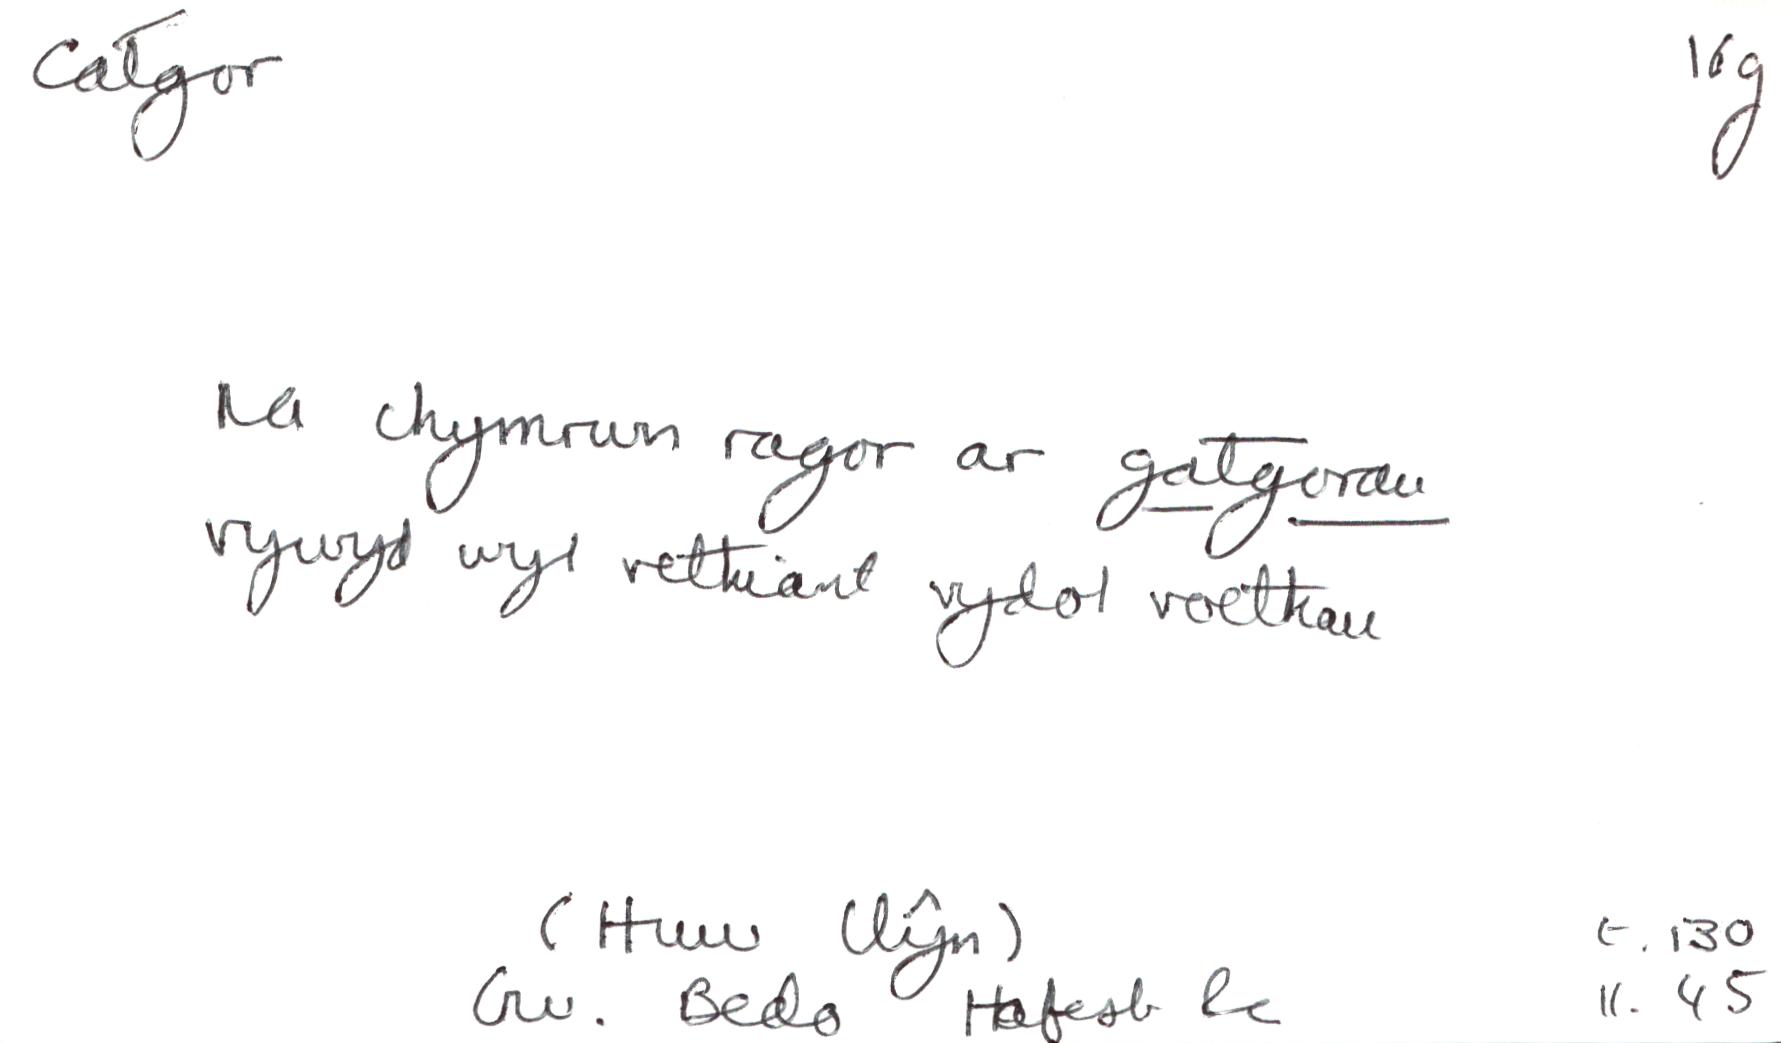 Catgor 16g
Na chymrwn ragor ar gatgorau
vywyd wyl vethiant vydol voethau
(Huw Llŷn) t. 130
Gw. Bedo Hafesb &c ll. 45